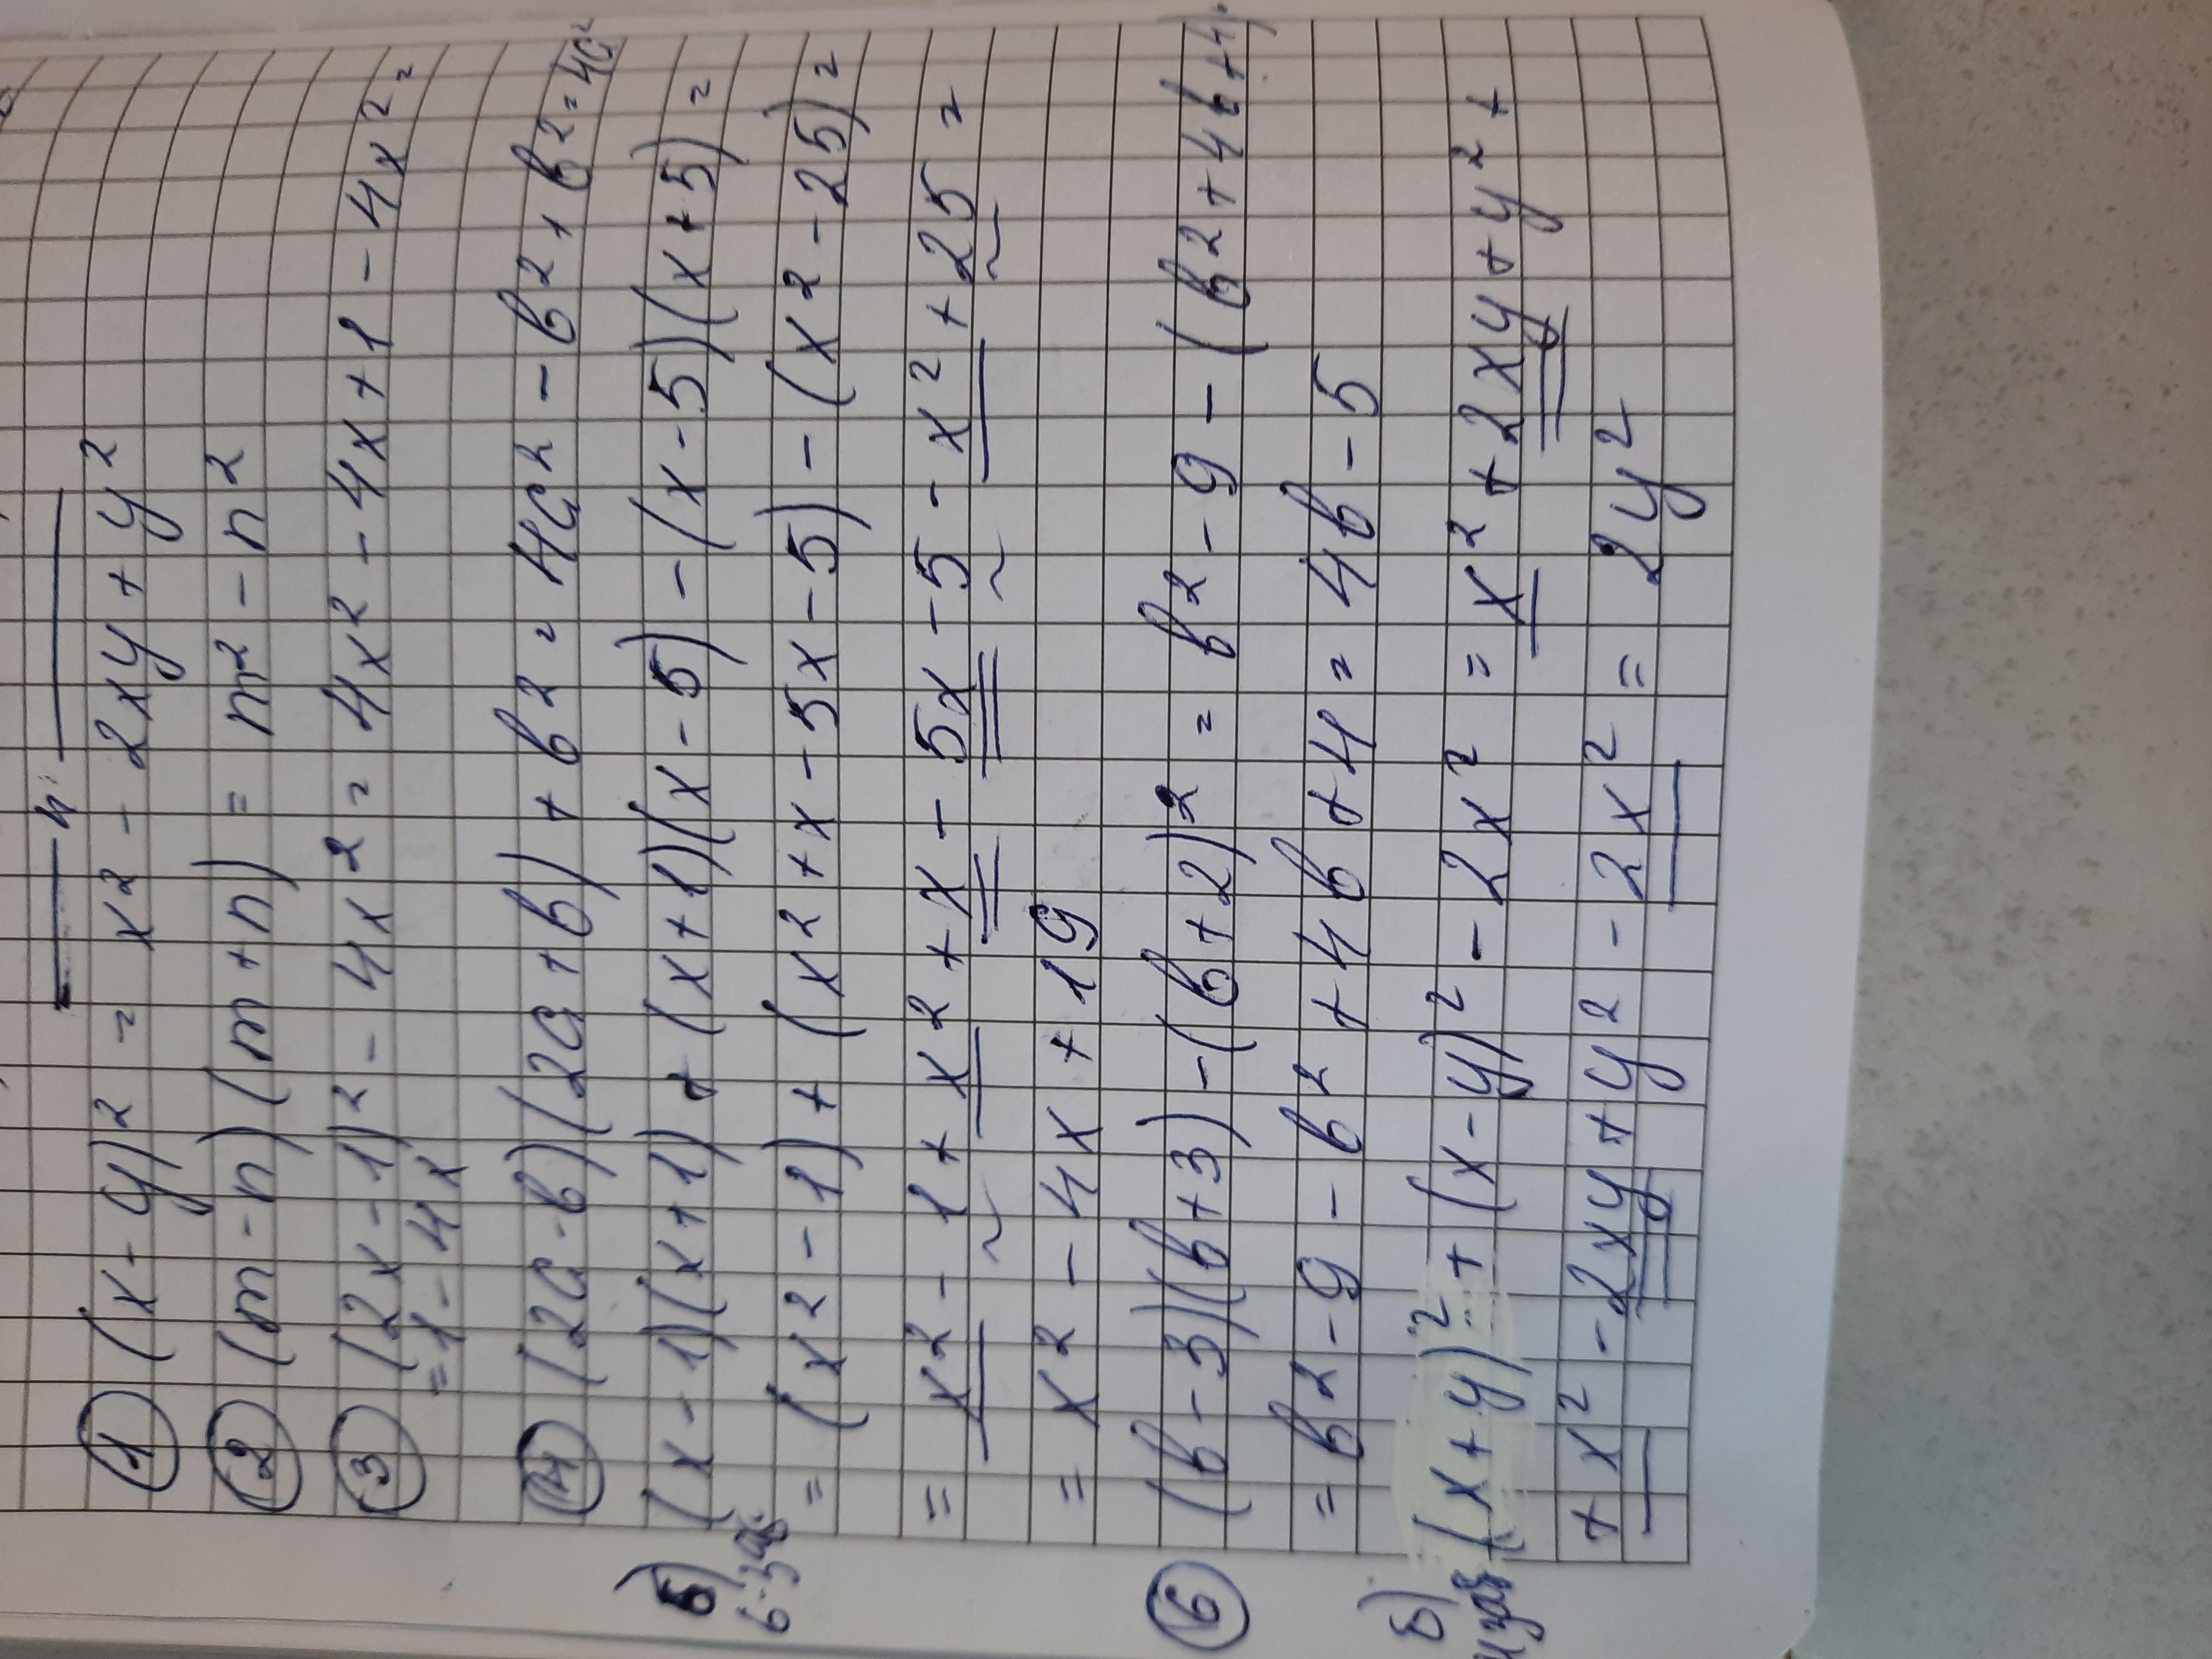 ① (x - y)² = x² - 2xy + y²
② (m - n)(m + n) = m² - n²
③ (2x - 1)² - 4x² = 4x² - 4x + 1 - 4x² =
= 1 - 4x
④ (2a - b)(2a + b) + b² = 4a² - b² + b² = 4a²
5) (x - 1)(x + 1) + (x + 1)(x - 5) - (x - 5)(x + 5) =
= (x² - 1) + (x² + x - 5x - 5) - (x² - 25) =
= x² - 1 + x² + x - 5x - 5 - x² + 25 =
= x² - 4x + 19
⑥ (b - 3)(b + 3) - (b + 2)² = b² - 9 - (b² + 4b + 4)
= b² - 9 - b² + 4b + 4 = 4b - 5
(x + y)² + (x - y)² - 2x² = x² + 2xy + y² +
+ x² - 2xy + y² - 2x² = 2y²